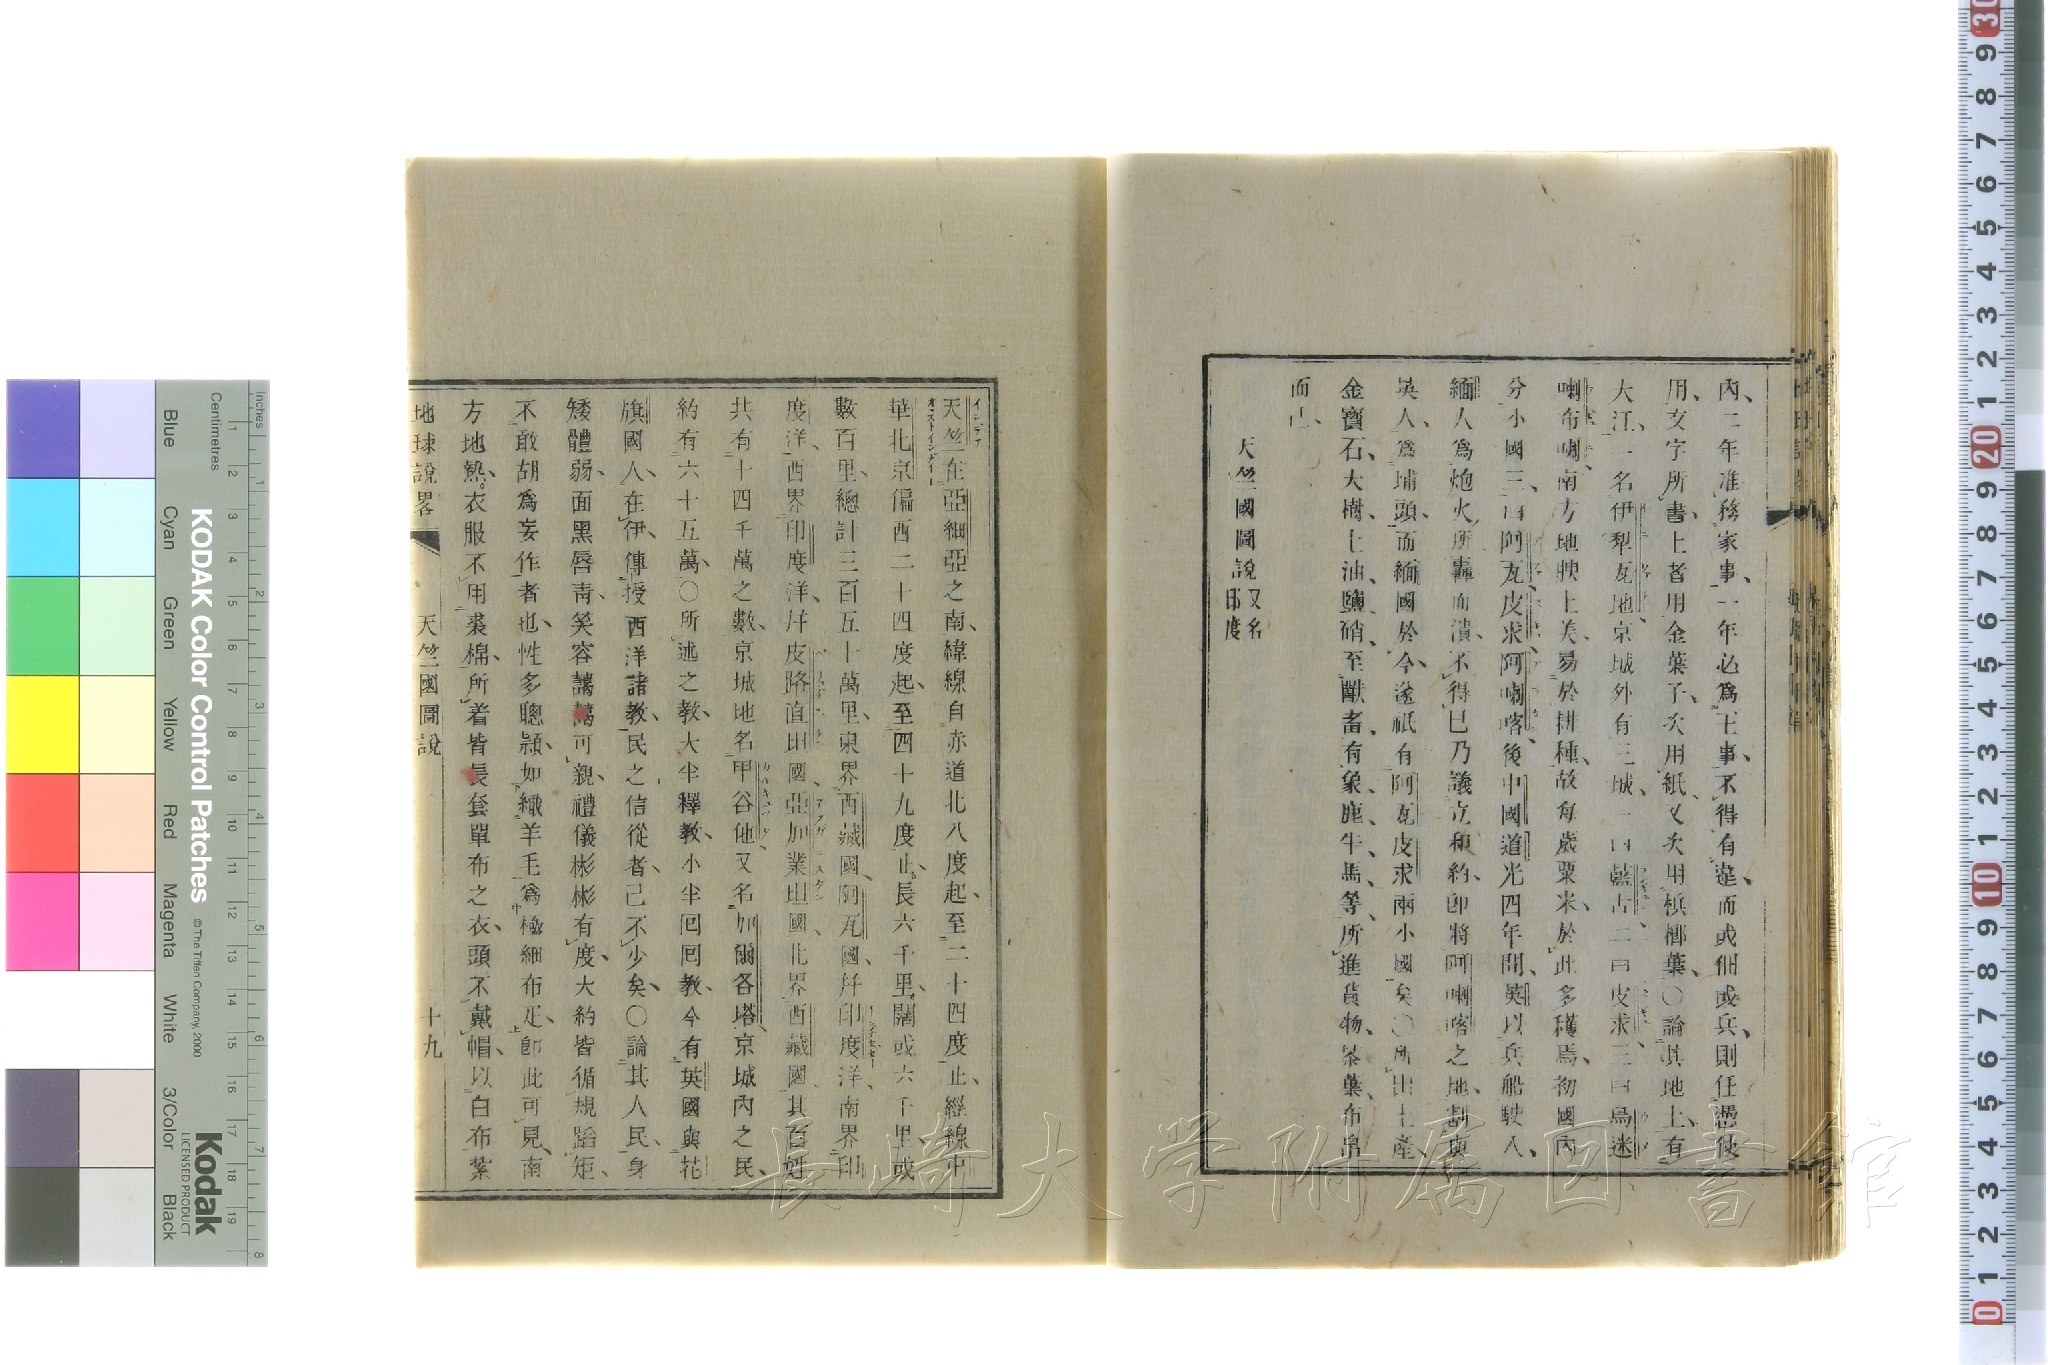 內二年准務家事、一年必為王事、不得有違而或佃或兵、則任憑使
用、文字所書上者用金葉子、次用紙、又次用檳榔葉、〇論其地上、有
大江、一名伊犁瓦地、京城外有三城、一曰藍古二曰皮求、三曰烏迷
喇布喇南方地腴土美、易於耕種、故每歲粟米、於此多穫焉、初國內
分小國三、曰阿瓦皮求阿喇喀後中國道光四年間、英以兵船駛入、
緬人為炮火所轟而潰、不得已乃議立和約、卽將阿喇喀之地、割與
英人、為埔頭、而緬國於今、遂祇有阿瓦皮求兩小國矣〇所出土產、
金寶石、大樹、土油、鹽、硝、至獸畜、有象、鹿、牛、馬等、所進貨物、茶葉、布帛
而已、
天竺國圖說又名印度
天竺在亞細亞之南、緯線自赤道北八度起、至二十四度止、經線中
華北京偏西二十四度起、至四十九度止。長六千里、闊或六千里、或
數百里、總計三百五十萬里、東界西藏國、阿瓦國、幷印度洋、南界印
度洋、西界印度洋、幷皮路直坦國、亞加業坦國、北界西藏國、其百姓
共有十四千萬之數、京城地名甲谷他、又名加爾各塔、京城內之民、
約有六十五萬、〇所述之教、大半釋教、小半回回教、今有英國與花
旗國人、在伊傳授西洋諸教、民之信從者、已不少矣、〇論其人民、身
矮體弱、面黑唇青、笑容藹藹可親、禮儀彬彬有度、大約皆循規蹈矩、
不敢胡為妄作者也、性多聰頴、如織羊毛為極細布疋、卽此可見、南
方地熱。衣服不用裘棉、所着皆長套單布之衣、頭不戴帽、以白布紮
地球說畧 天竺國圖說 十九
イニデア
オーストインダイー
KODAK Color Control Patches
© The Tiffen Company, 2000
Kodak
LICENSED PRODUCT
Blue Cyan Green Yellow Red Magenta White 3/Color Black
Inches
Centimetres
長崎大学附属図書館